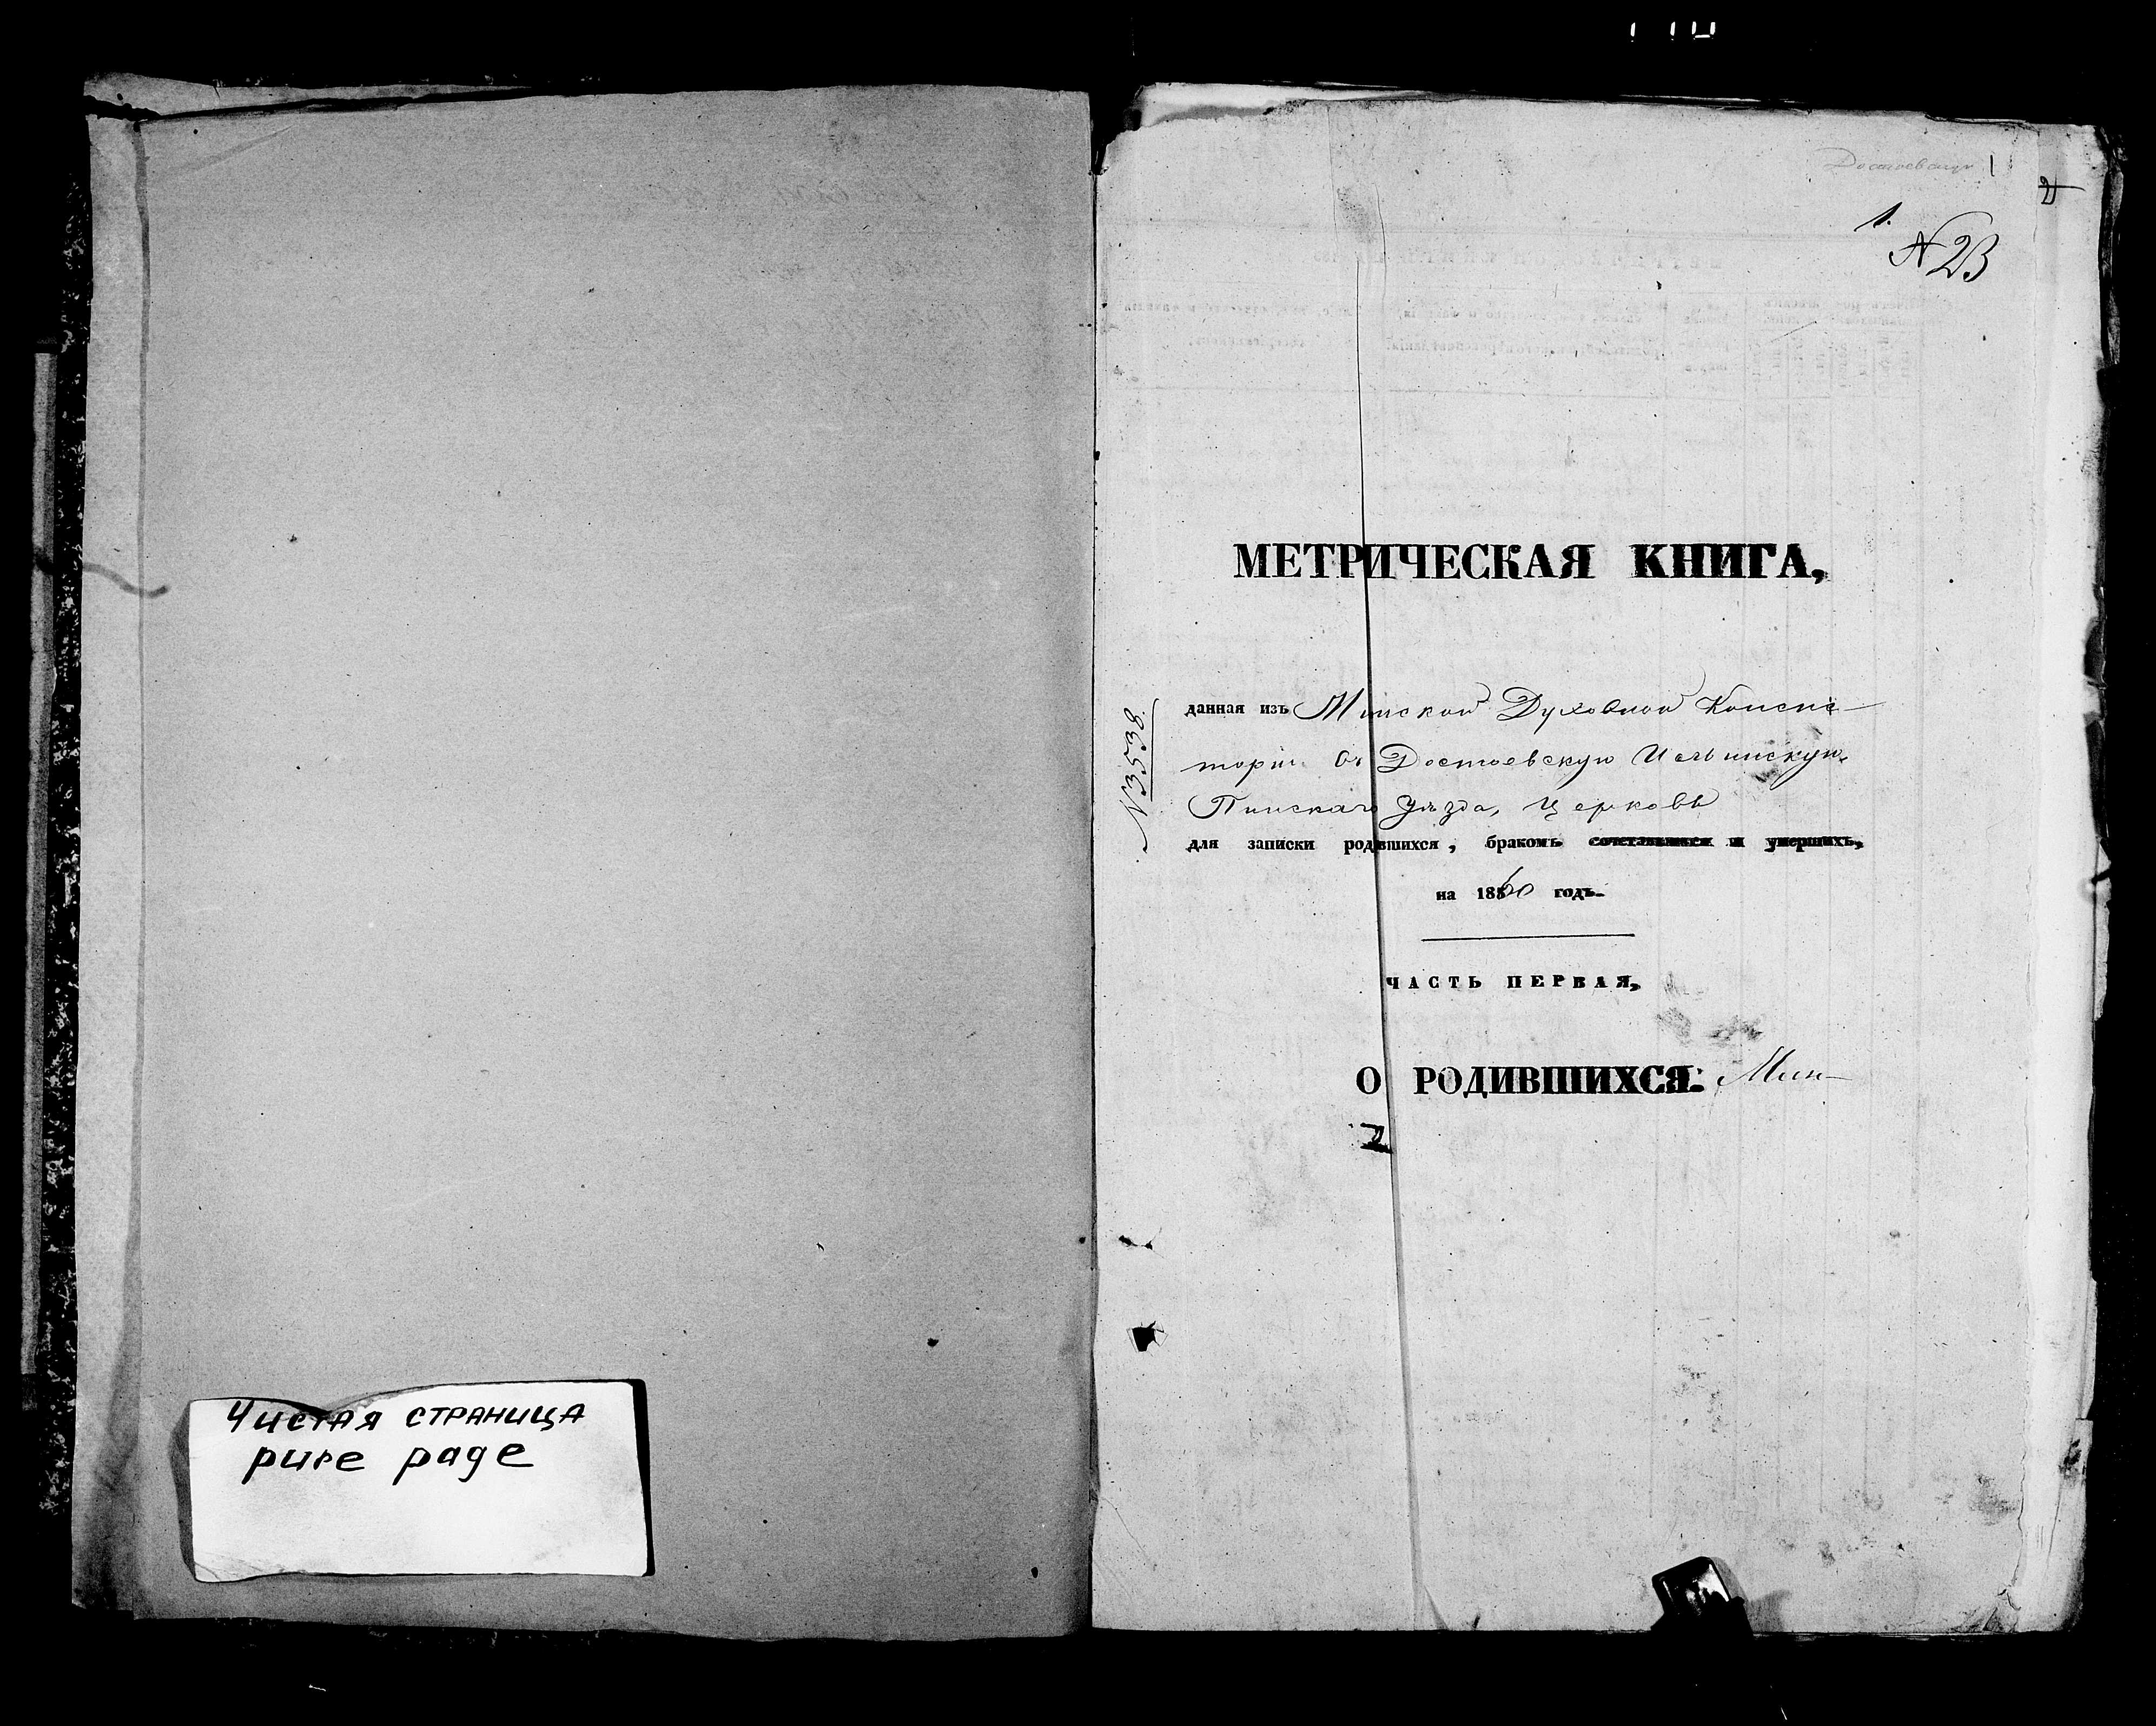 Чистая страница
pure page
Достоевскую 1
2
1.
№ 23
МЕТРИЧЕСКАЯ КНИГА,
№ 3538.
данная изъ Минской Духовной Консис-
торiи въ Достоевскую Ильинскую,
Пинскаго уѣзда, Церковь
для записки родившихся, бракомъ сочетавшихся и умершихъ,
на 1860 годъ.
ЧАСТЬ ПЕРВАЯ,
О РОДИВШИХСЯ: Мин-
2